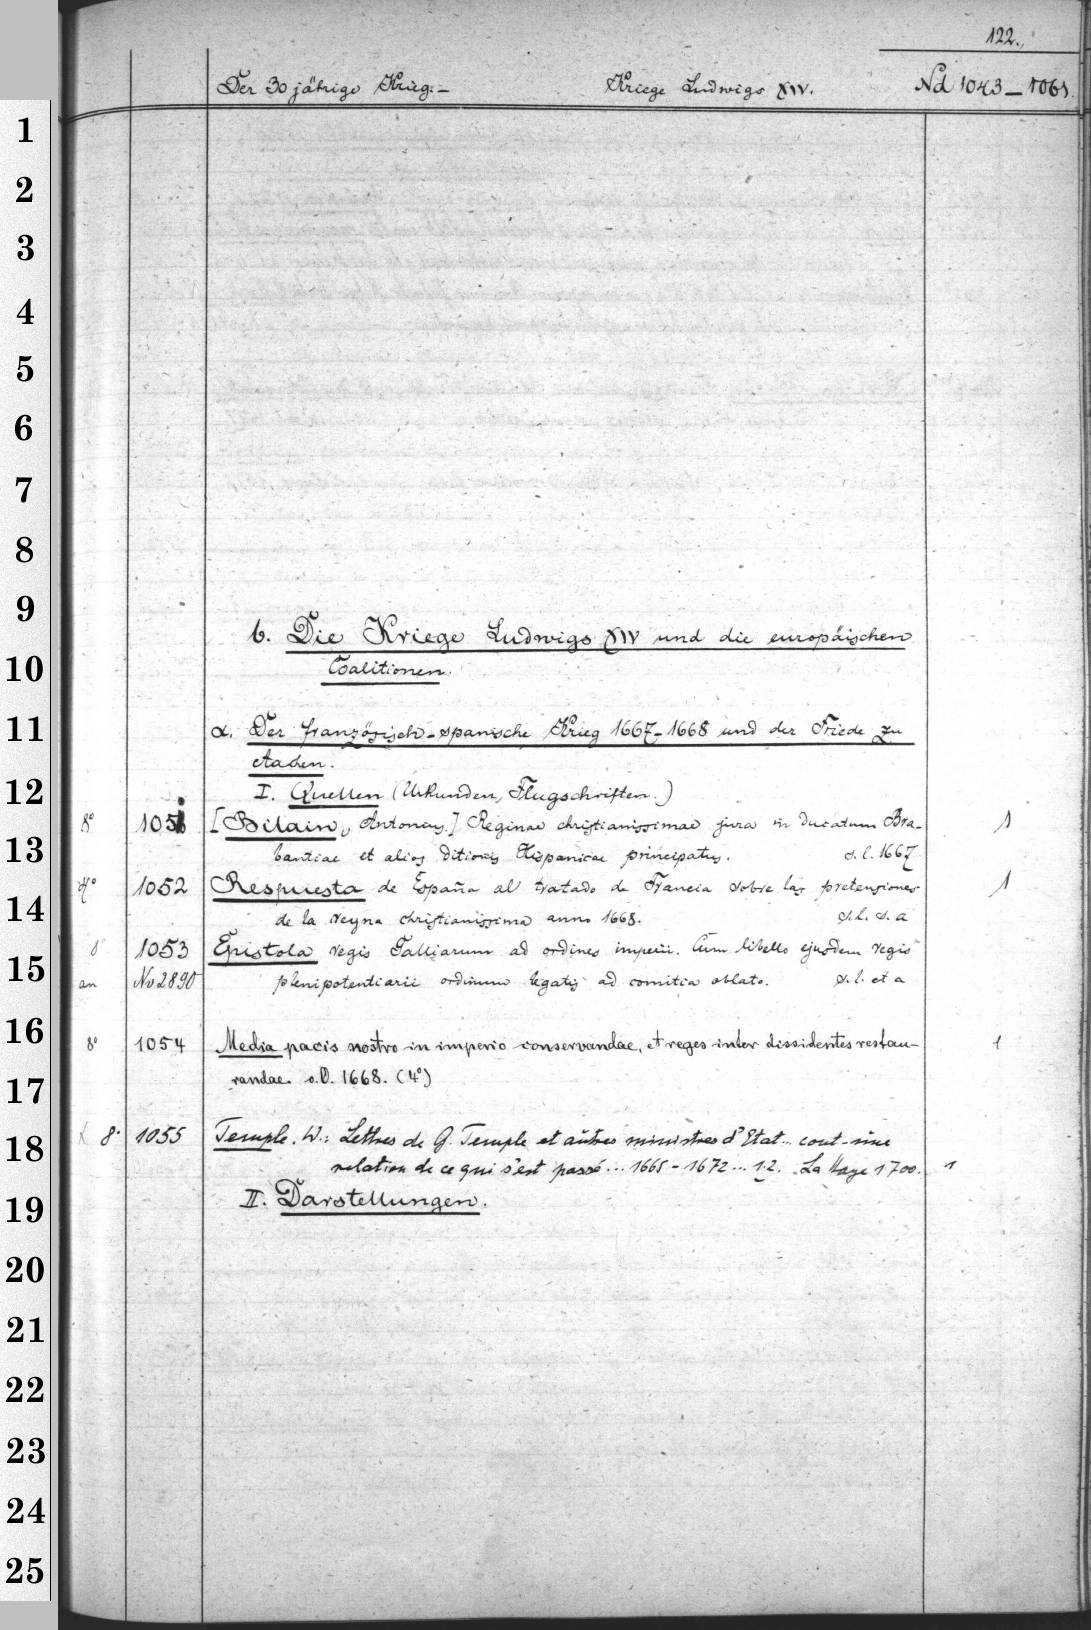 122.
Der 30 jährige Krieg.- Kriege Ludwigs XIV. Nd 1043-1061
1
2
3
4
5
6
7
8
9
b. Die Kriege Ludwigs XIV und die europäischen
10 Coalitionen.
11 α. Der französisch-spanische Krieg 1667-1668 und der Friede zu
Aachen.
12 I. Quellen (Urkunden, Flugschriften.)
8° 1051 [Bilain, Antonius.] Reginae christianissimae jura in ducatum Bra-
13 bantiae et alios ditionis Hispanicae principatus. s. l. 1667
4° 1052 Respuesta de España al tratado de Francia sobre las pretensiones 1
14 de la reyna christianissima anno 1668. s. l. s. a
8° 1053 Epistola regis Galliarum ad ordines imperii. Cum libello ejusdem regis
15 an Nv 2890 plenipotentiarii ordinum legatis ad comitia oblato. s. l. et a
16 8° 1054 Media pacis nostro in imperio conservandae, et reges inter dissidentes restau- 1
17 randae. s.O. 1668. (4°)
18 8° 1055 Temple, W.: Lettres de G. Temple et autres ministres d'Etat... cont. une
relation de ce qui s'est passé... 1665-1672... 1.2. La Haye 1700. 1
19 II. Darstellungen.
20
21
22
23
24
25